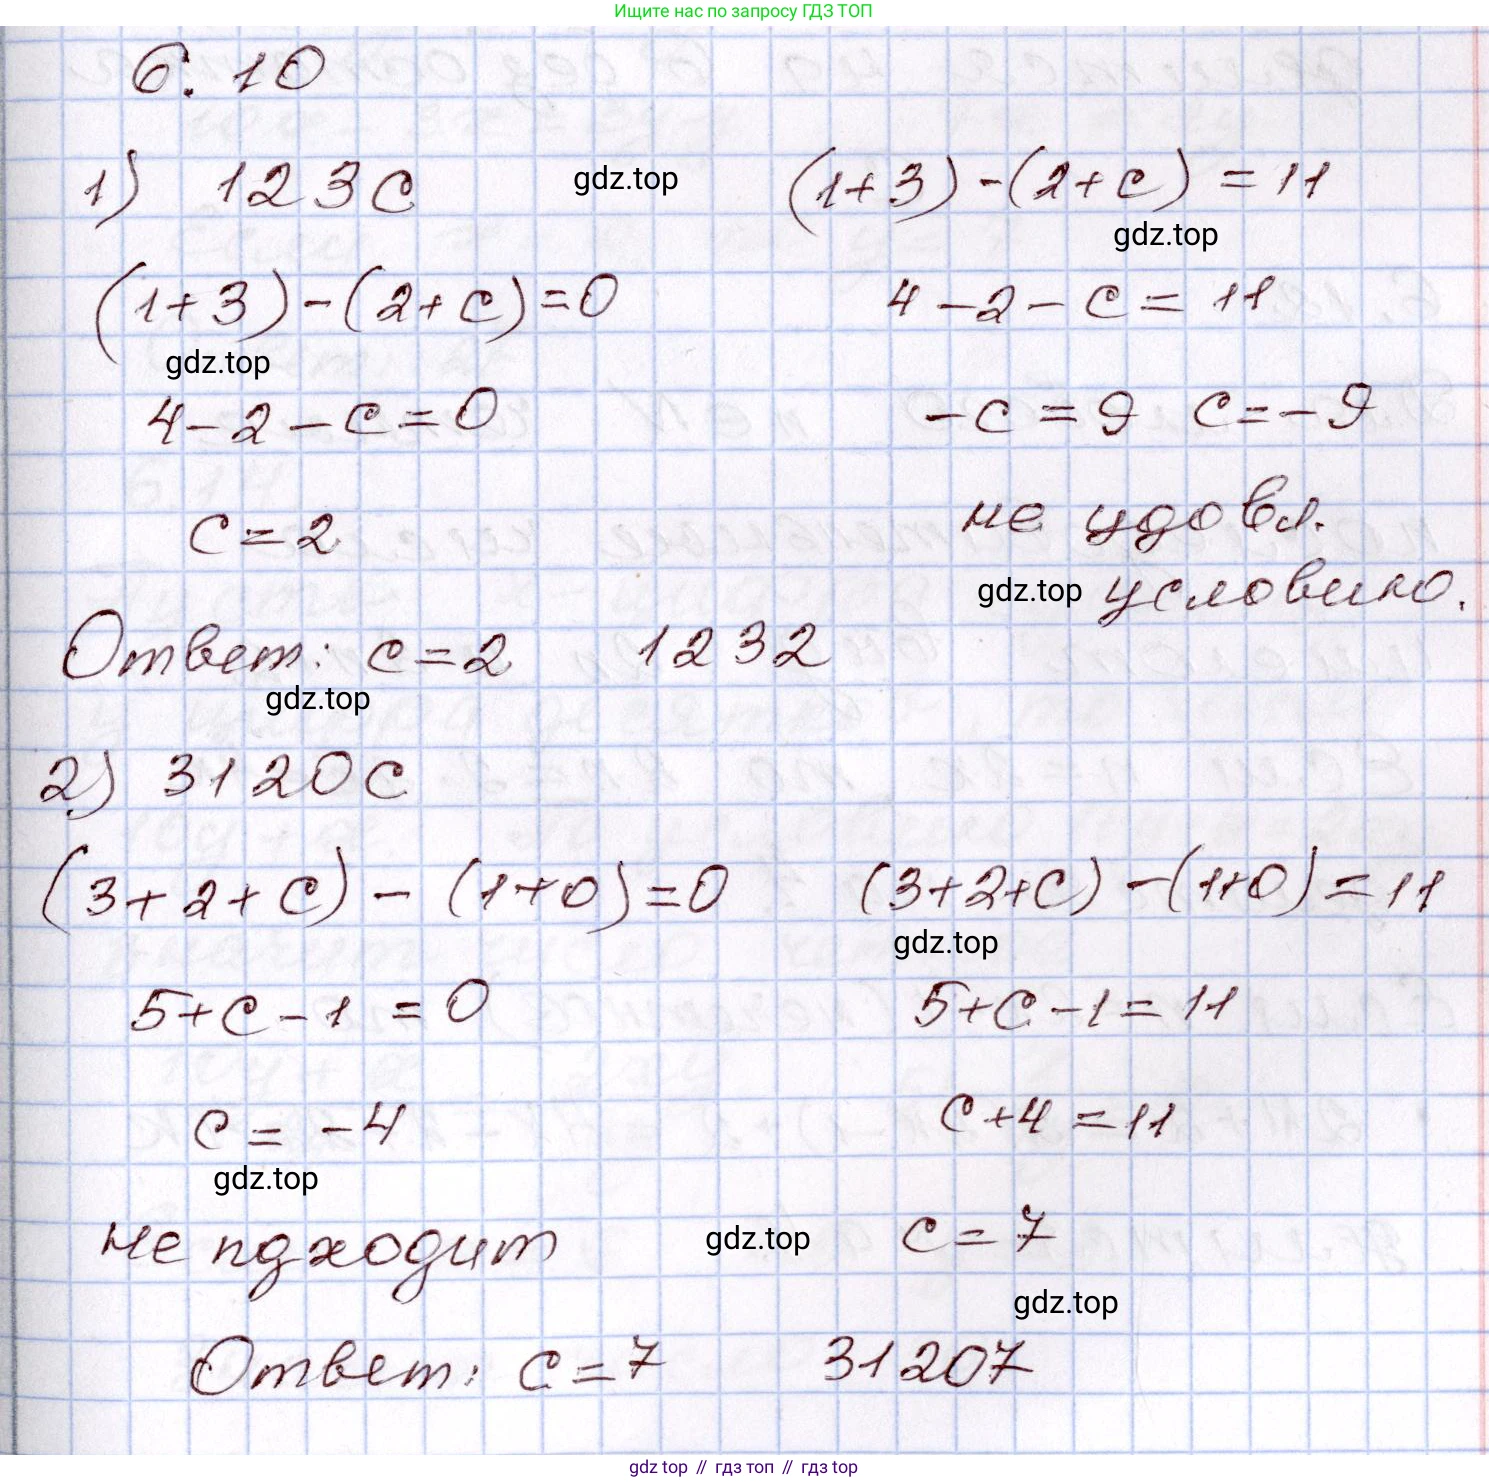 Ищите нас по запросу ГДЗ ТОП
6.10
1) 123c
gdz.top
(1+3)-(2+c)=11
gdz.top
(1+3)-(2+c)=0
4-2-c=11
gdz.top
4-2-c=0
-c=9 c=-9
c=2
не удовл.
gdz.top
условию.
Ответ: c=2 1232
gdz.top
2) 3120c
(3+2+c)-(1+0)=0
(3+2+c)-(1+0)=11
gdz.top
5+c-1=0
5+c-1=11
c=-4
c+4=11
gdz.top
не пдходит
gdz.top
c=7
gdz.top
Ответ: c=7 31207
gdz top // гдз топ // gdz top